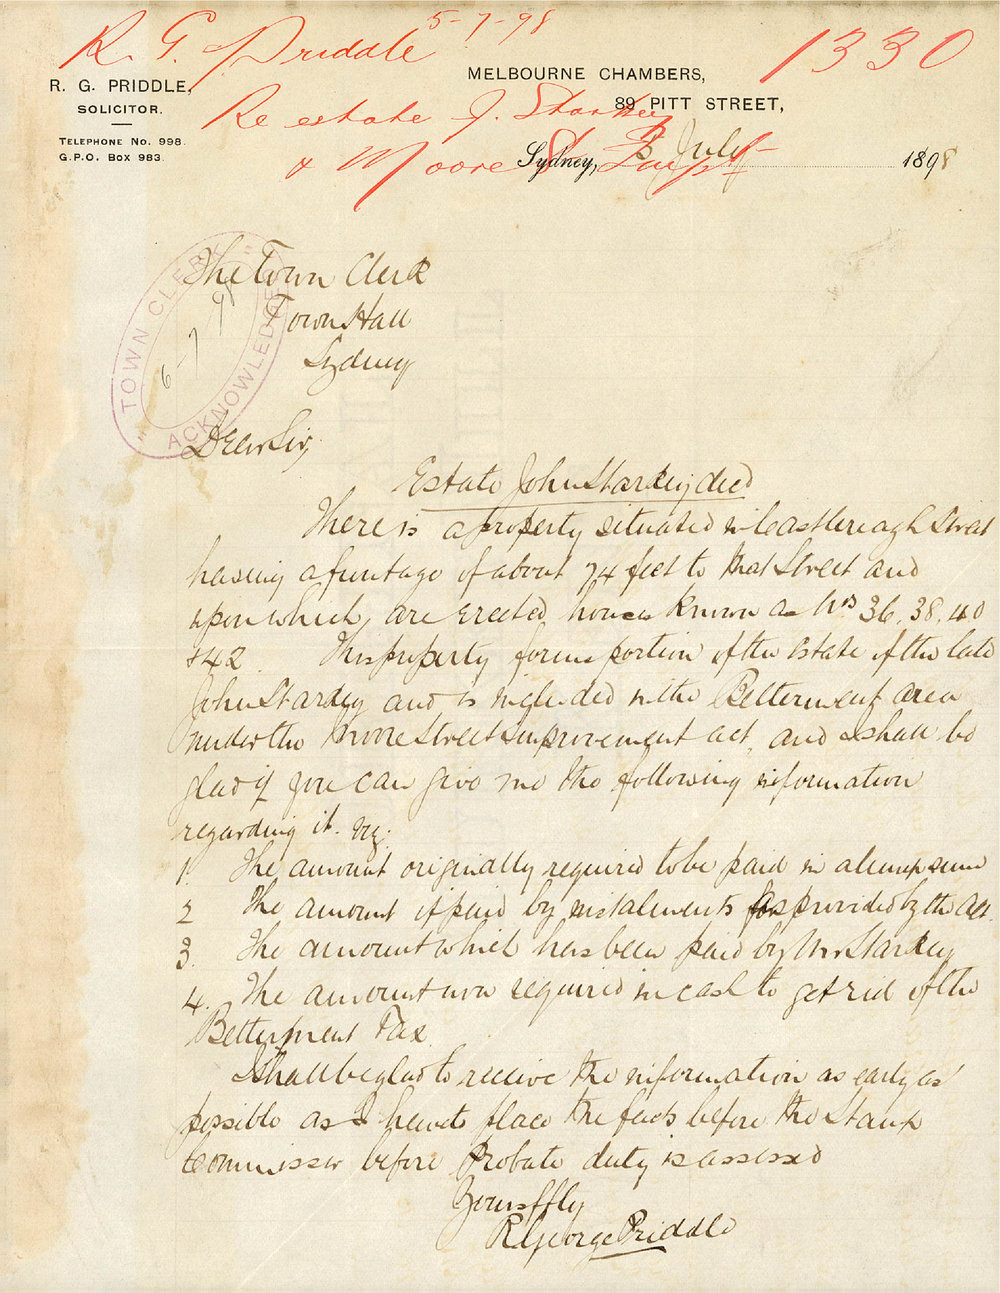 R. G. Priddle 5-7-98
1330
R. G. PRIDDLE,
SOLICITOR.
TELEPHONE No. 998.
G.P.O. Box 983.
MELBOURNE CHAMBERS,
89 PITT STREET,
Re estate J. Starkey
& Moore St Impt
Sydney, 5 July 1898
"TOWN CLERK"
6-7-98
ACKNOWLEDGED
The Town Clerk
Town Hall
Sydney
Dear Sir,
Estate John Starkey decd
There is a property situated in Castlereagh Street
having a funtage of about 74 feet to that Street and
upon which are erected houses known as Nos 36, 38, 40
& 42. This property forms portion of the Estate of the late
John Starkey and is included in the Betterment area
under the Moore Street Improvement Act, and I shall be
glad if you can give me the following information
regarding it. viz:
1. The amount originally required to be paid in a lump sum
2 The amount if paid by instalments as provided by the Act.
3. The amount which has been paid by Mr Starkey
4. The amount now required in cash to get rid of the
Betterment Tax.
I shall be glad to receive the information as early as
possible as I have to place the facts before the Stamp
Commissr before Probate duty is assessed
Yours ffly
R George Priddle